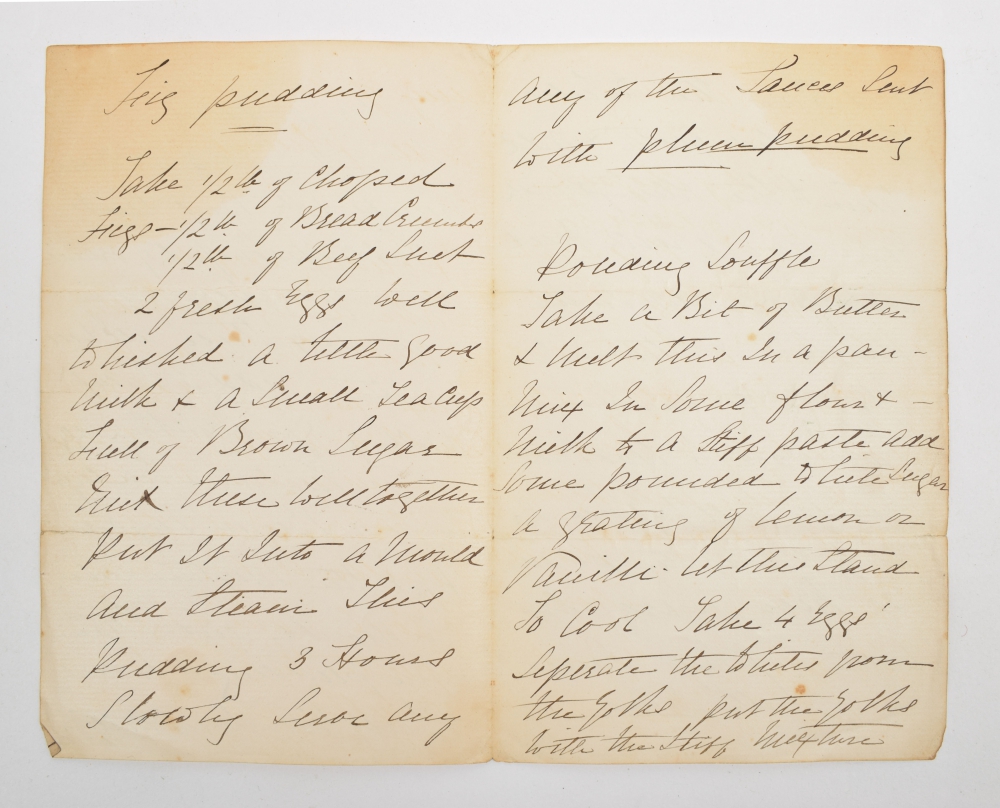 Fig pudding
Take 1/2 lb of Choped
Figs - 1/2 lb of Bread Crumbs
1/2 lb of Beef Suet
2 fresh Eggs well
whisked a little good
Milk & a Small Teacup
Full of Brown Sugar
Mix these well together
Put It Into a Mould
And Steam This
Pudding 3 Hours
Slowly Serve Any
Any of the Sauces Sent
With plum pudding
Pouding Souffle
Take a Bit of Butter
& Melt this In a pan -
Mix In Some flour & -
Milk to a Stiff paste add
Some pounded White Sugar
a grating of lemon or
Vanilli let this Stand
To Cool Take 4 Eggs
Seperate the Whites from
the Yolks put the Yolks
With the Stiff Mixture